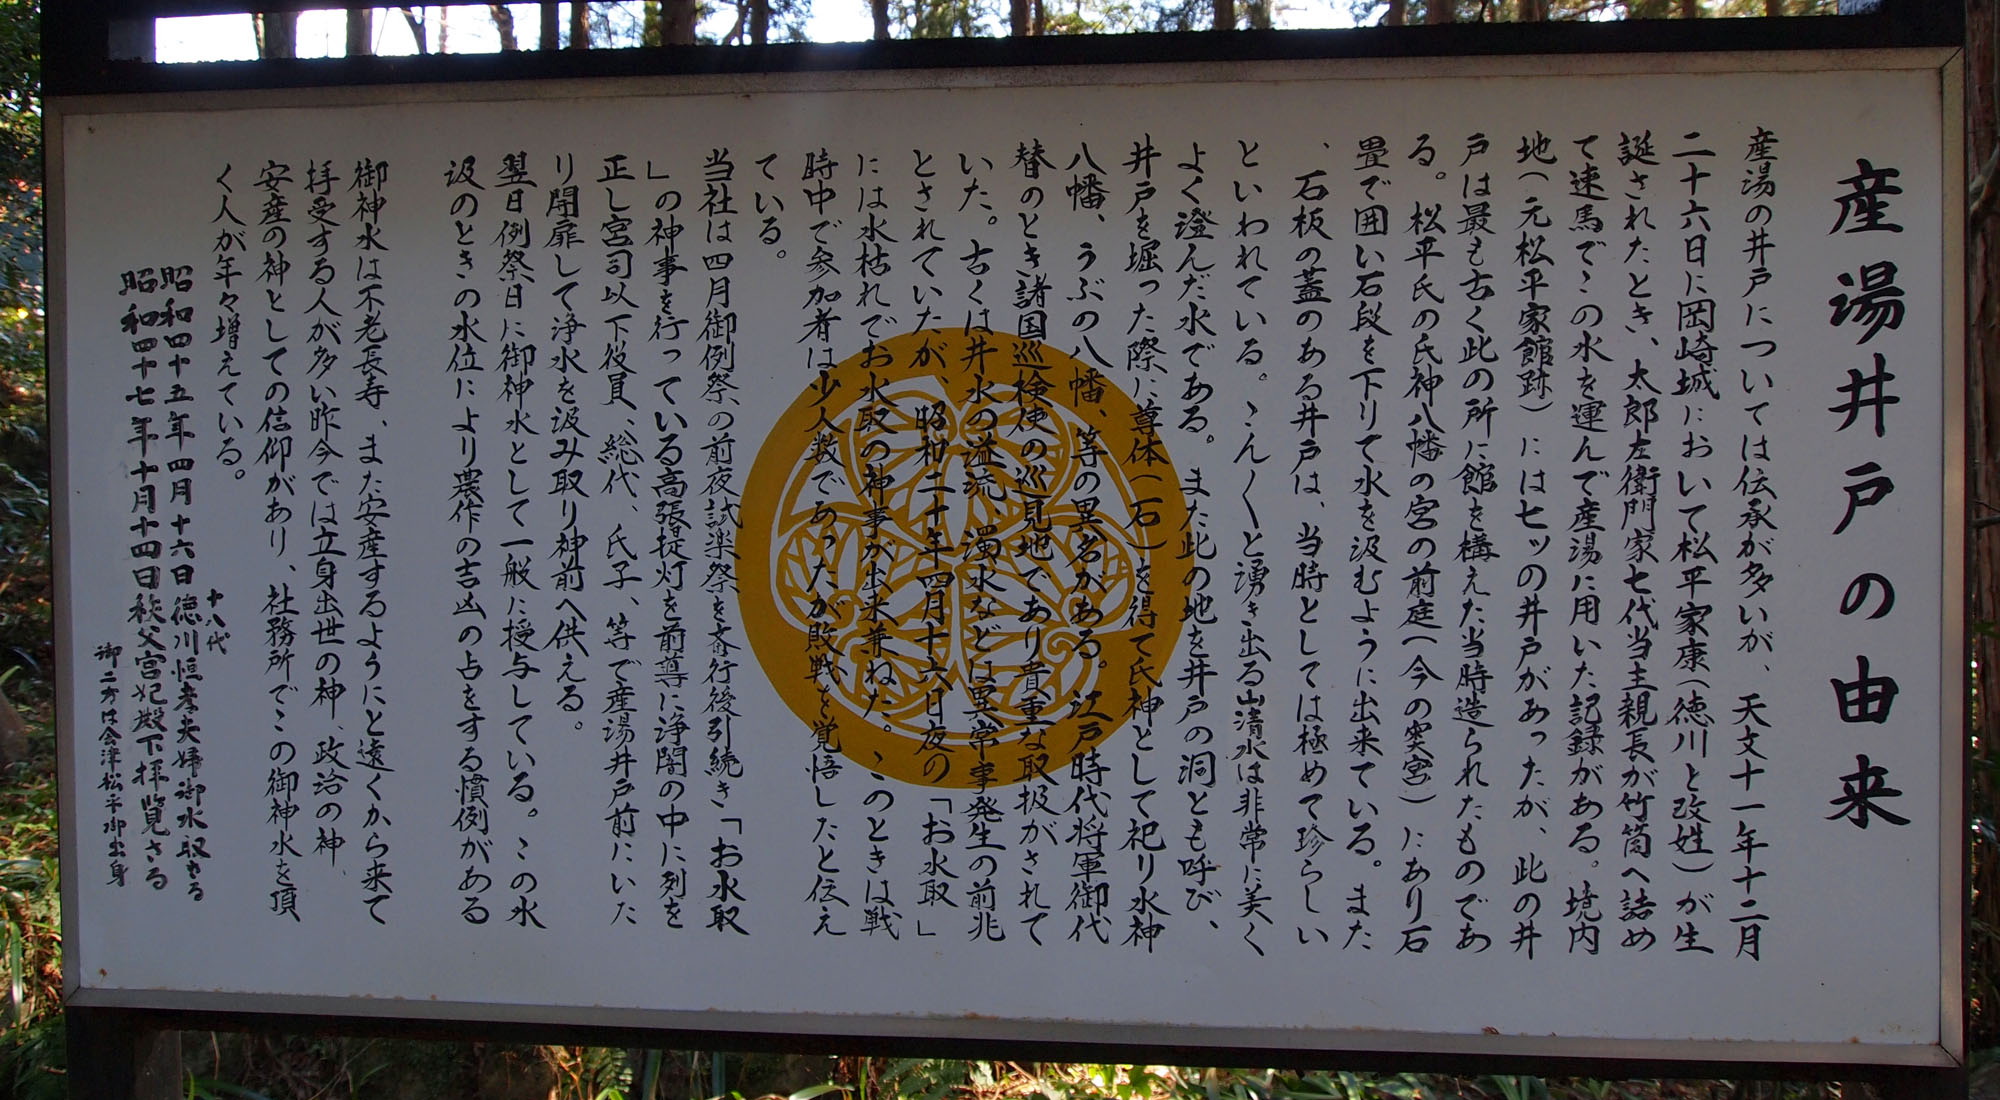 産湯井戸の由来
産湯の井戸については伝承が多いが、天文十一年十二月
二十六日に岡崎城において松平家康(徳川と改姓)が生
誕されたとき、太郎左衛門家七代当主親長が竹筒へ詰め
て速馬でこの水を運んで産湯に用いた記録がある。境内
地(元松平家館跡)には七ッの井戸があったが、此の井
戸は最も古く此の所に館を構えた当時造られたものであ
る。松平氏の氏神八幡の宮の前庭(今の奥宮)にあり石
畳で囲い石段を下りて水を汲むように出来ている。また
、石板の蓋のある井戸は、当時としては極めて珍らしい
といわれている。こんこんと湧き出る山清水は非常に美く
よく澄んだ水である。また此の地を井戸の洞とも呼び、
井戸を堀った際に尊体(石)を得て氏神として祀り水神
八幡、うぶの八幡、等の異名がある。江戸時代将軍御代
替のとき諸国巡検使の巡見地であり貴重な取扱がされて
いた。古くは井水の溢流、濁水などは異常事発生の前兆
とされていたが、昭和二十年四月十六日夜の「お水取」
には水枯れでお水取の神事が出来兼ねた。このときは戦
時中で参加者は少人数であったが敗戦を覚悟したと伝え
ている。
当社は四月御例祭の前夜試楽祭を斎行後引続き「お水取
」の神事を行っている高張提灯を前導に浄闇の中に列を
正し宮司以下役員、総代、氏子、等で産湯井戸前にいた
り開扉して浄水を汲み取り神前へ供える。
翌日例祭日に御神水として一般に授与している。この水
汲のときの水位により農作の吉凶の占をする慣例がある
御神水は不老長寿、また安産するようにと遠くから来て
拝受する人が多い昨今では立身出世の神、政治の神、
安産の神としての信仰があり、社務所でこの御神水を頂
く人が年々増えている。
昭和四十五年四月十六日十八代徳川恒孝夫婦御水取さる
昭和四十七年十月十四日秩父宮妃殿下拝覧さる
御二方は会津松平御出身